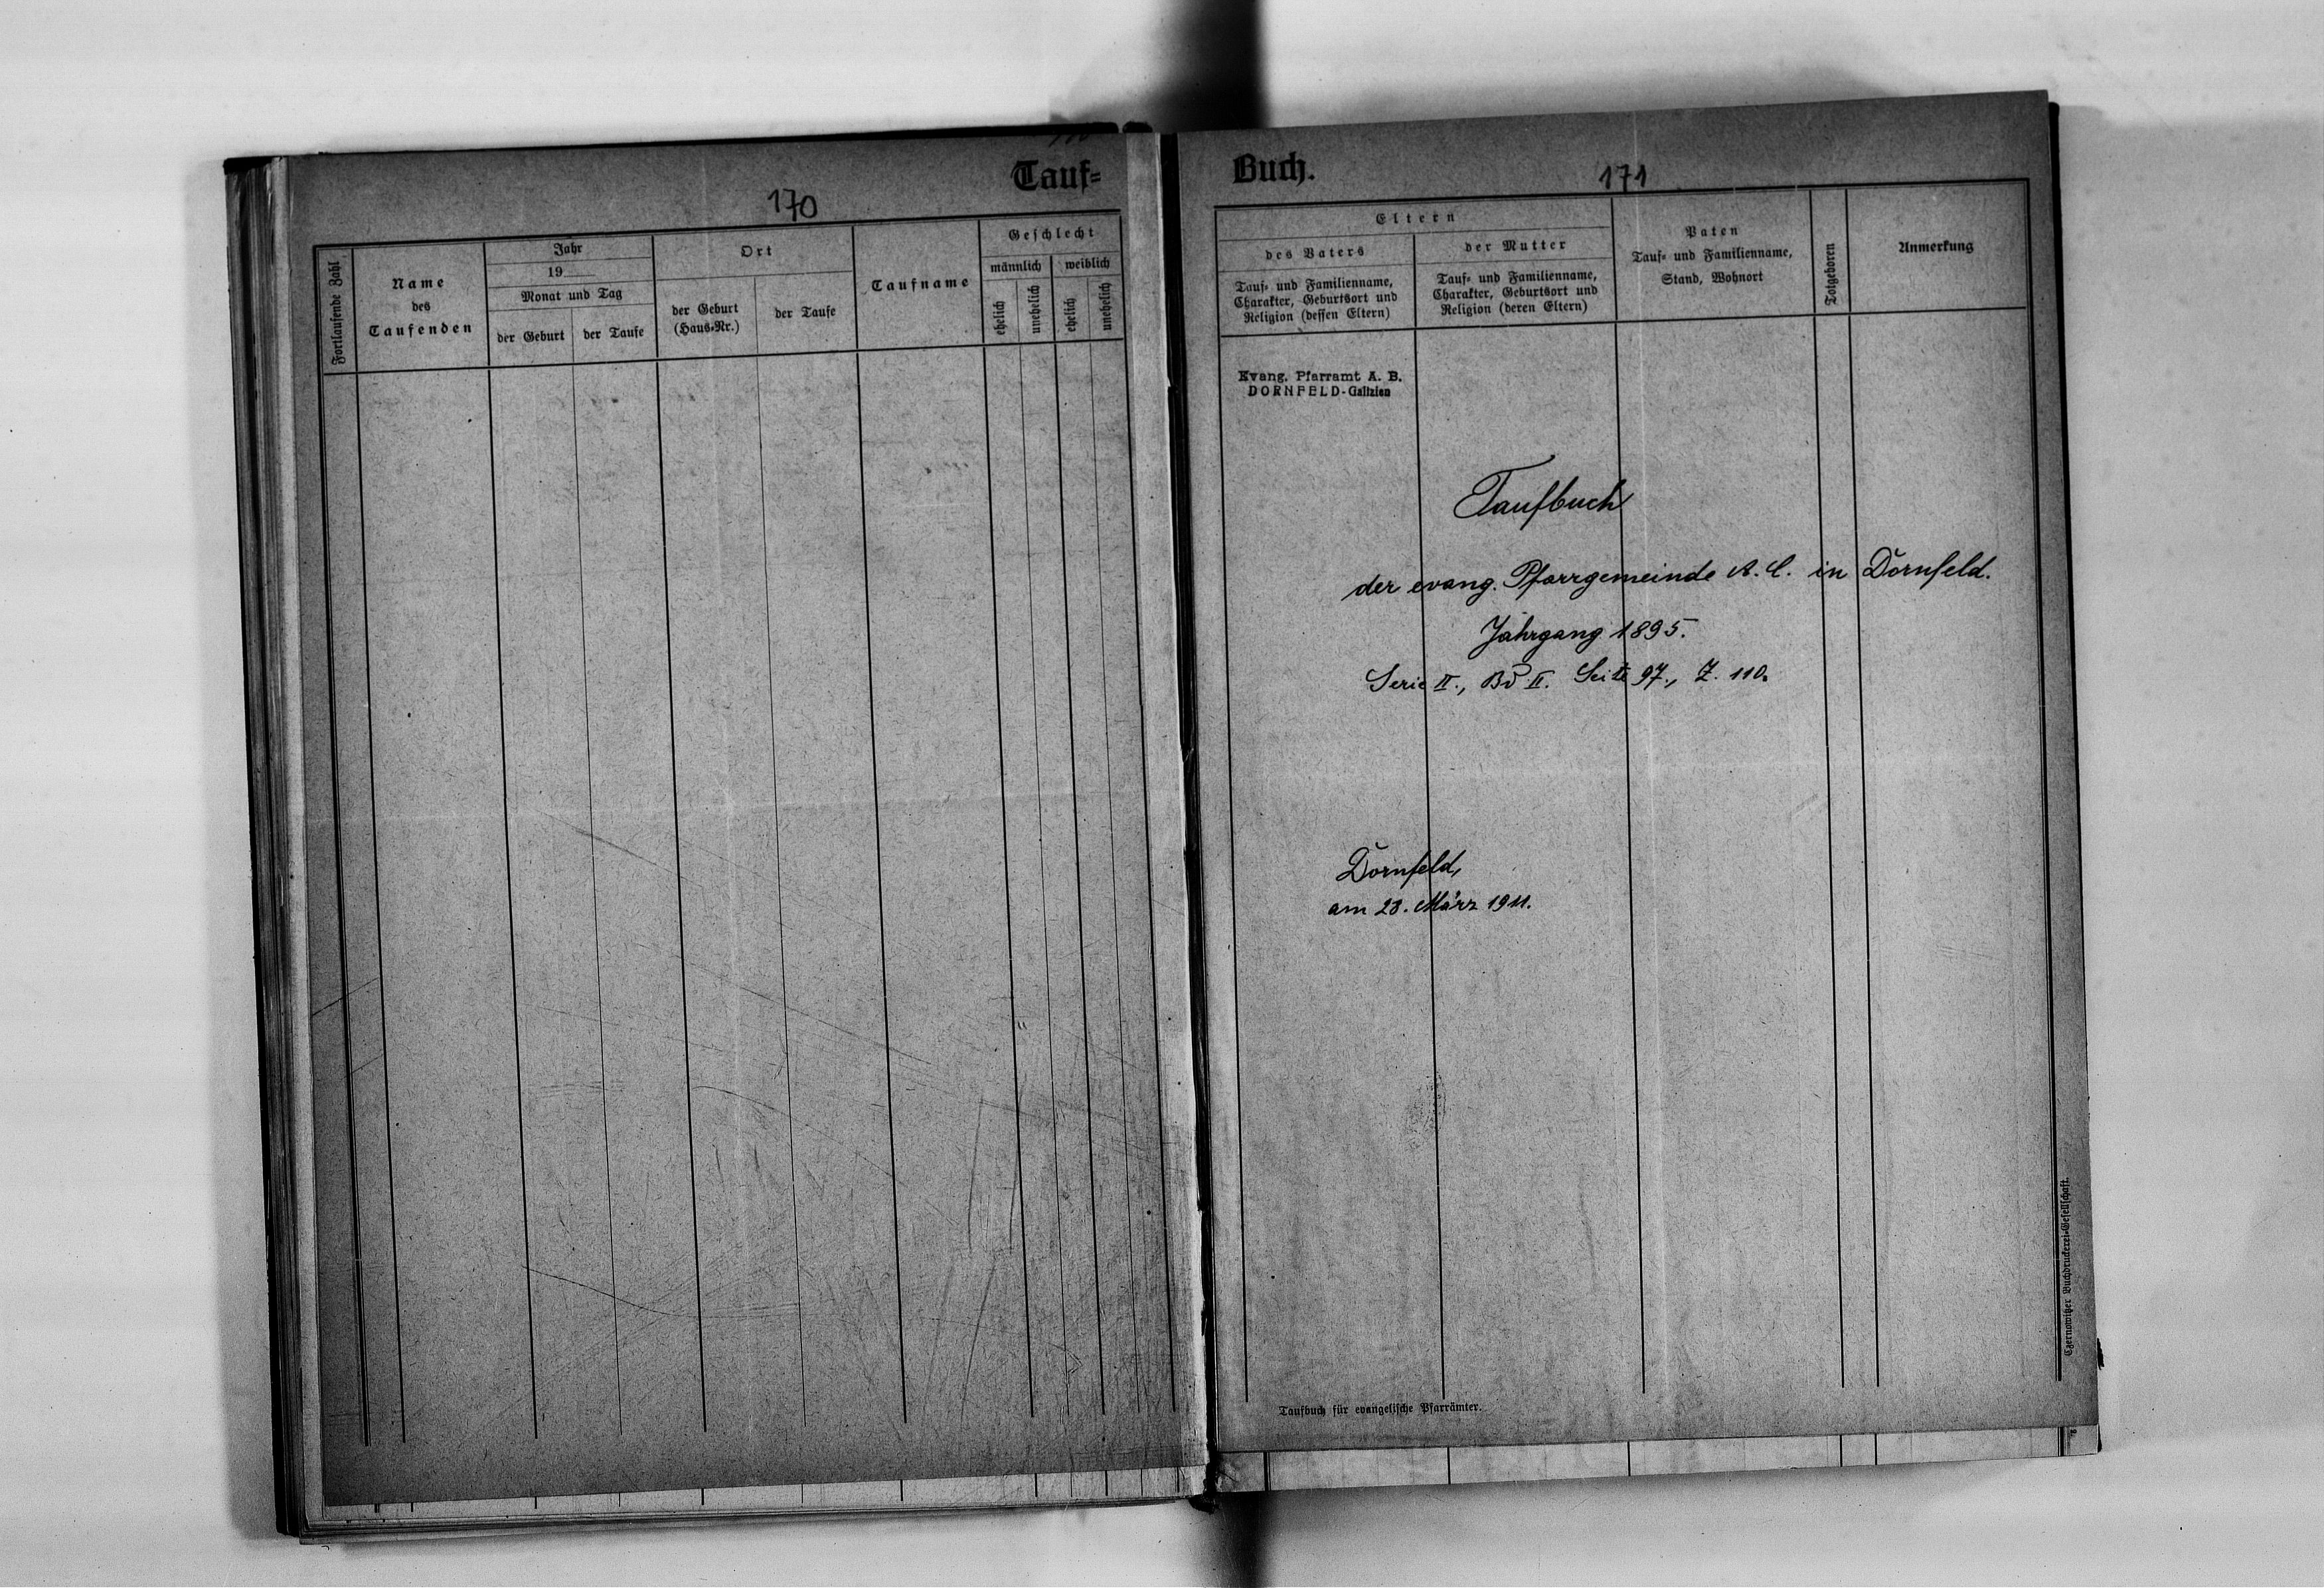 Tauf=
170
Fortlaufende Zahl
Name
des
Taufenden
Jahr
19
Monat und Tag
der Geburt
der Taufe
Ort
der Geburt
(Haus=Nr.)
der Taufe
Taufname
Geschlecht
männlich
weiblich
ehelich
unehelich
ehelich
unehelich
Buch.
171
Eltern
des Vaters
Tauf= und Familienname,
Charakter, Geburtsort und
Religion (dessen Eltern)
der Mutter
Tauf= und Familienname,
Charakter, Geburtsort und
Religion (deren Eltern)
Paten
Tauf= und Familienname,
Stand, Wohnort
Totgeboren
Anmerkung
Evang. Pfarramt A. B.
DORNFELD-Galizien
Taufbuch
der evang. Pfarrgemeinde A. C. in Dornfeld.
Jahrgang 1895.
Serie II., Bd. II. Seite 97., Z. 110.
Dornfeld,
am 23. März 1911.
Taufbuch für evangelische Pfarrämter.
Czernowitzer Buchdruckerei=Gesellschaft.